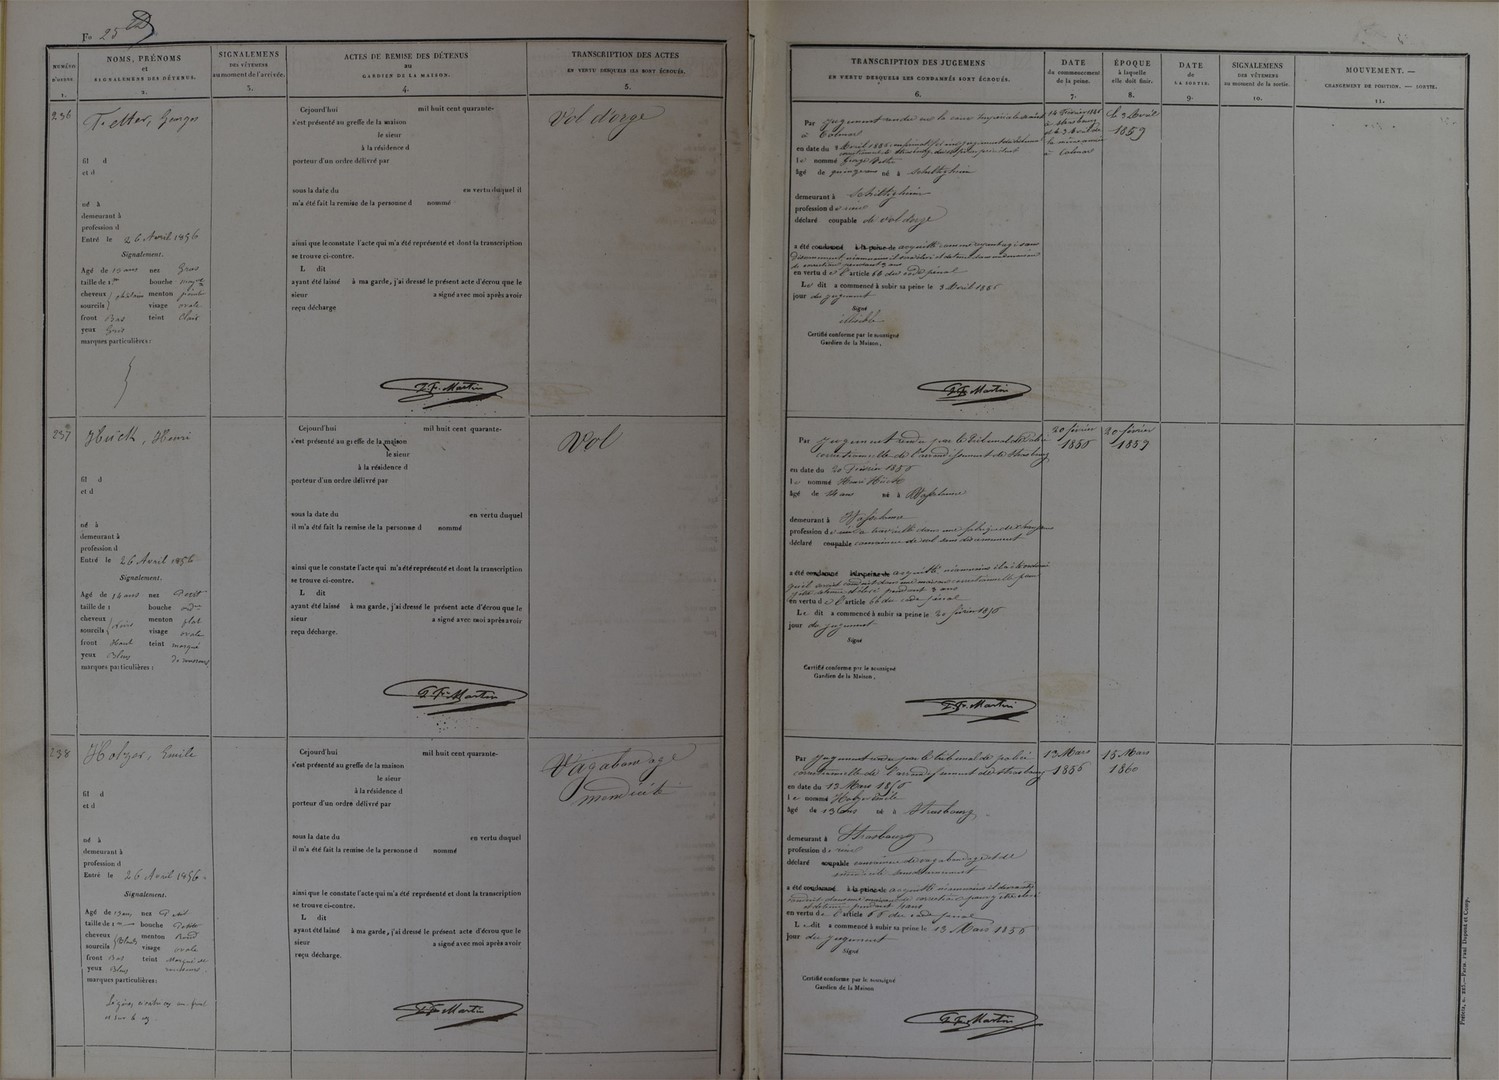 F° 25
NUMÉRO D'ORDRE. 1.
NOMS, PRÉNOMS et SIGNALEMENS DES DÉTENUS. 2.
SIGNALEMENS DES VÊTEMENS au moment de l'arrivée. 3.
ACTES DE REMISE DES DÉTENUS AU GARDIEN DE LA MAISON. 4.
TRANSCRIPTION DES ACTES EN VERTU DESQUELS ILS SONT ÉCROUÉS. 5.
TRANSCRIPTION DES JUGEMENS EN VERTU DESQUELS LES CONDAMNÉS SONT ÉCROUÉS. 6.
DATE du commencement de la peine. 7.
ÉPOQUE à laquelle elle doit finir. 8.
DATE de LA SORTIE. 9.
SIGNALEMENS DES VÊTEMENS au moment de la sortie. 10.
MOUVEMENT. — CHANGEMENT DE POSITION. — SORTIE. 11.
236
Georges
fil d
et d
né à
demeurant à
profession d
Entré le 26 Avril 1856
Signalement.
Agé de 15 ans nez Gros
taille de 1m bouche moye
cheveux menton pointu
sourcils visage ovale
front Bas teint Clair
yeux Gris
marques particulières :
Cejourd'hui mil huit cent quarante-
s'est présenté au greffe de la maison
le sieur
à la résidence d
porteur d'un ordre délivré par
sous la date du en vertu duquel il
m'a été fait la remise de la personne d nommé
ainsi que le constate l'acte qui m'a été représenté et dont la transcription
se trouve ci-contre.
L dit
ayant été laissé à ma garde, j'ai dressé le présent acte d'écrou que le
sieur a signé avec moi après avoir
reçu décharge
Martin
Vol d'orge
Par Jugement rendu
à Colmar
en date du 3 Avril 1856
le nommé
âgé de quinze ans né à Schiltigheim
demeurant à Schiltigheim
profession de
déclaré coupable de vol d'orge
a été condamné à la peine de acquitté comme ayant agi sans
discernement néanmoins
de correction pendant 3 ans
en vertu de l'article 66 du code pénal
Le dit a commencé à subir sa peine le 3 Avril 1856
jour du jugement
Signé
Certifié conforme par le soussigné
Gardien de la Maison,
Martin
Février
à Strasbourg
à Colmar
le 3 Avril
1859
237
Huck, Henri
fil d
et d
né à
demeurant à
profession d
Entré le 26 Avril 1856
Signalement.
Agé de 14 ans nez Petit
taille de 1 bouche
cheveux menton plat
sourcils Noirs visage ovale
front Haut teint marqué
yeux Bleus de rousseurs
marques particulières :
Cejourd'hui mil huit cent quarante-
s'est présenté au greffe de la maison
le sieur
à la résidence d
porteur d'un ordre délivré par
sous la date du en vertu duquel
il m'a été fait la remise de la personne d nommé
ainsi que le constate l'acte qui m'a été représenté et dont la transcription
se trouve ci-contre.
L dit
ayant été laissé à ma garde, j'ai dressé le présent acte d'écrou que le
sieur a signé avec moi après avoir
reçu décharge.
Martin
Vol
Par Jugement rendu par le tribunal de police
correctionnelle de l'arrondissement de Strasbourg
en date du 20 Février 1856
le nommé Henri Huck
âgé de 14 ans né à Wasselonne
demeurant à Wasselonne
profession de
déclaré coupable convaincu de vol sans discernement
a été condamné à la peine de acquitté néanmoins
en vertu de l'article 66 du code pénal
Le dit a commencé à subir sa peine le 20 février 1856
jour du jugement
Signé
Certifié conforme par le soussigné
Gardien de la Maison,
Martin
20 février
1856
20 février
1859
238
Holzer, Emile
fil d
et d
né à
demeurant à
profession d
Entré le 26 Avril 1856
Signalement.
Agé de 13 ans nez Petit
taille de 1m bouche Petite
cheveux menton Rond
sourcils Blonds visage ovale
front Bas teint Marqué de
yeux Bleus rousseurs
marques particulières:
Cejourd'hui mil huit cent quarante-
s'est présenté au greffe de la maison
le sieur
à la résidence d
porteur d'un ordre délivré par
sous la date du en vertu duquel
il m'a été fait la remise de la personne d nommé
ainsi que le constate l'acte qui m'a été représenté et dont la transcription
se trouve ci-contre.
L dit
ayant été laissé à ma garde, j'ai dressé le présent acte d'écrou que le
sieur a signé avec moi après avoir
reçu décharge.
Martin
Vagabondage
mendicité
Par Jugement rendu par le tribunal de police
correctionnelle de l'arrondissement de Strasbourg
en date du 13 Mars 1856
le nommé Holzer Emile
âgé de 13 ans né à Strasbourg
demeurant à Strasbourg
profession de
déclaré coupable convaincu de vagabondage et de
mendicité sans discernement
a été condamné à la peine de acquitté néanmoins
et détenu pendant 4 ans
en vertu de l'article 66 du code pénal
Le dit a commencé à subir sa peine le 13 Mars 1856
jour du jugement
Signé
Certifié conforme par le soussigné
Gardien de la Maison
Martin
13 Mars
1856
Mars
1860